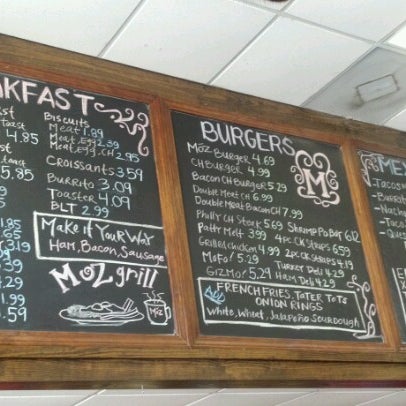 KFAST
Biscuits
Meat 1.89
Meat, Egg 2.39
Meat, Egg, CH 2.95
4.85
Croissants 3.59
.85
Burrito 3.09
Toaster 4.09
BLT 2.99
Make it Your Way
Ham, Bacon, Sausage
Moz grill
Moz
BURGERS
Moz Burger 4.69
CH Burger 4.99
Bacon CH Burger 5.29
Double Meat CH 6.99
Double Meat Bacon CH 7.99
Philly CH Steak 5.69
Shrimp Po Boy 6.12
Patty Melt 3.99
2pc CK Strips 6.59
Grilled chicken 4.99
4pc CK Strips 4.59
MoFo! 5.29
Turkey Deli 4.29
GizMo! 5.29
Ham Deli 4.29
M
Add
FRENCH FRIES, TATER TOTS
ONION RINGS
White, Wheat, Jalapeño Sourdough
MEX
Tacos
- Burrito
- Nach
- Taco
- Ques